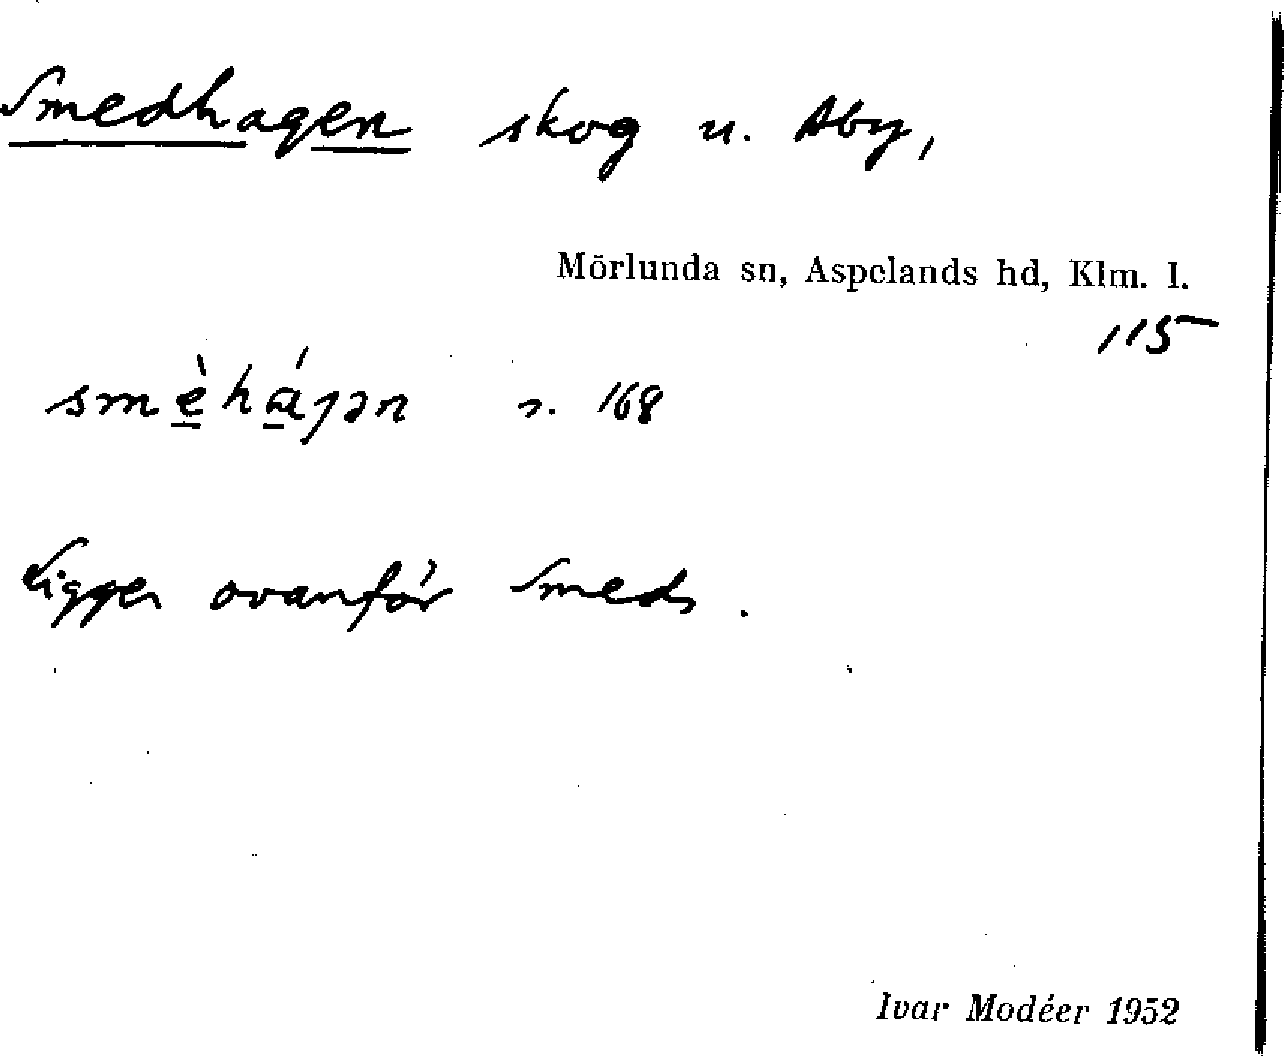 Smedhagen skog u. Åby,
Mörlunda sn, Aspelands hd, Klm. l.
115
smèhájən s. 168
Ligger ovanför Smeds.
Ivar Modéer 1952